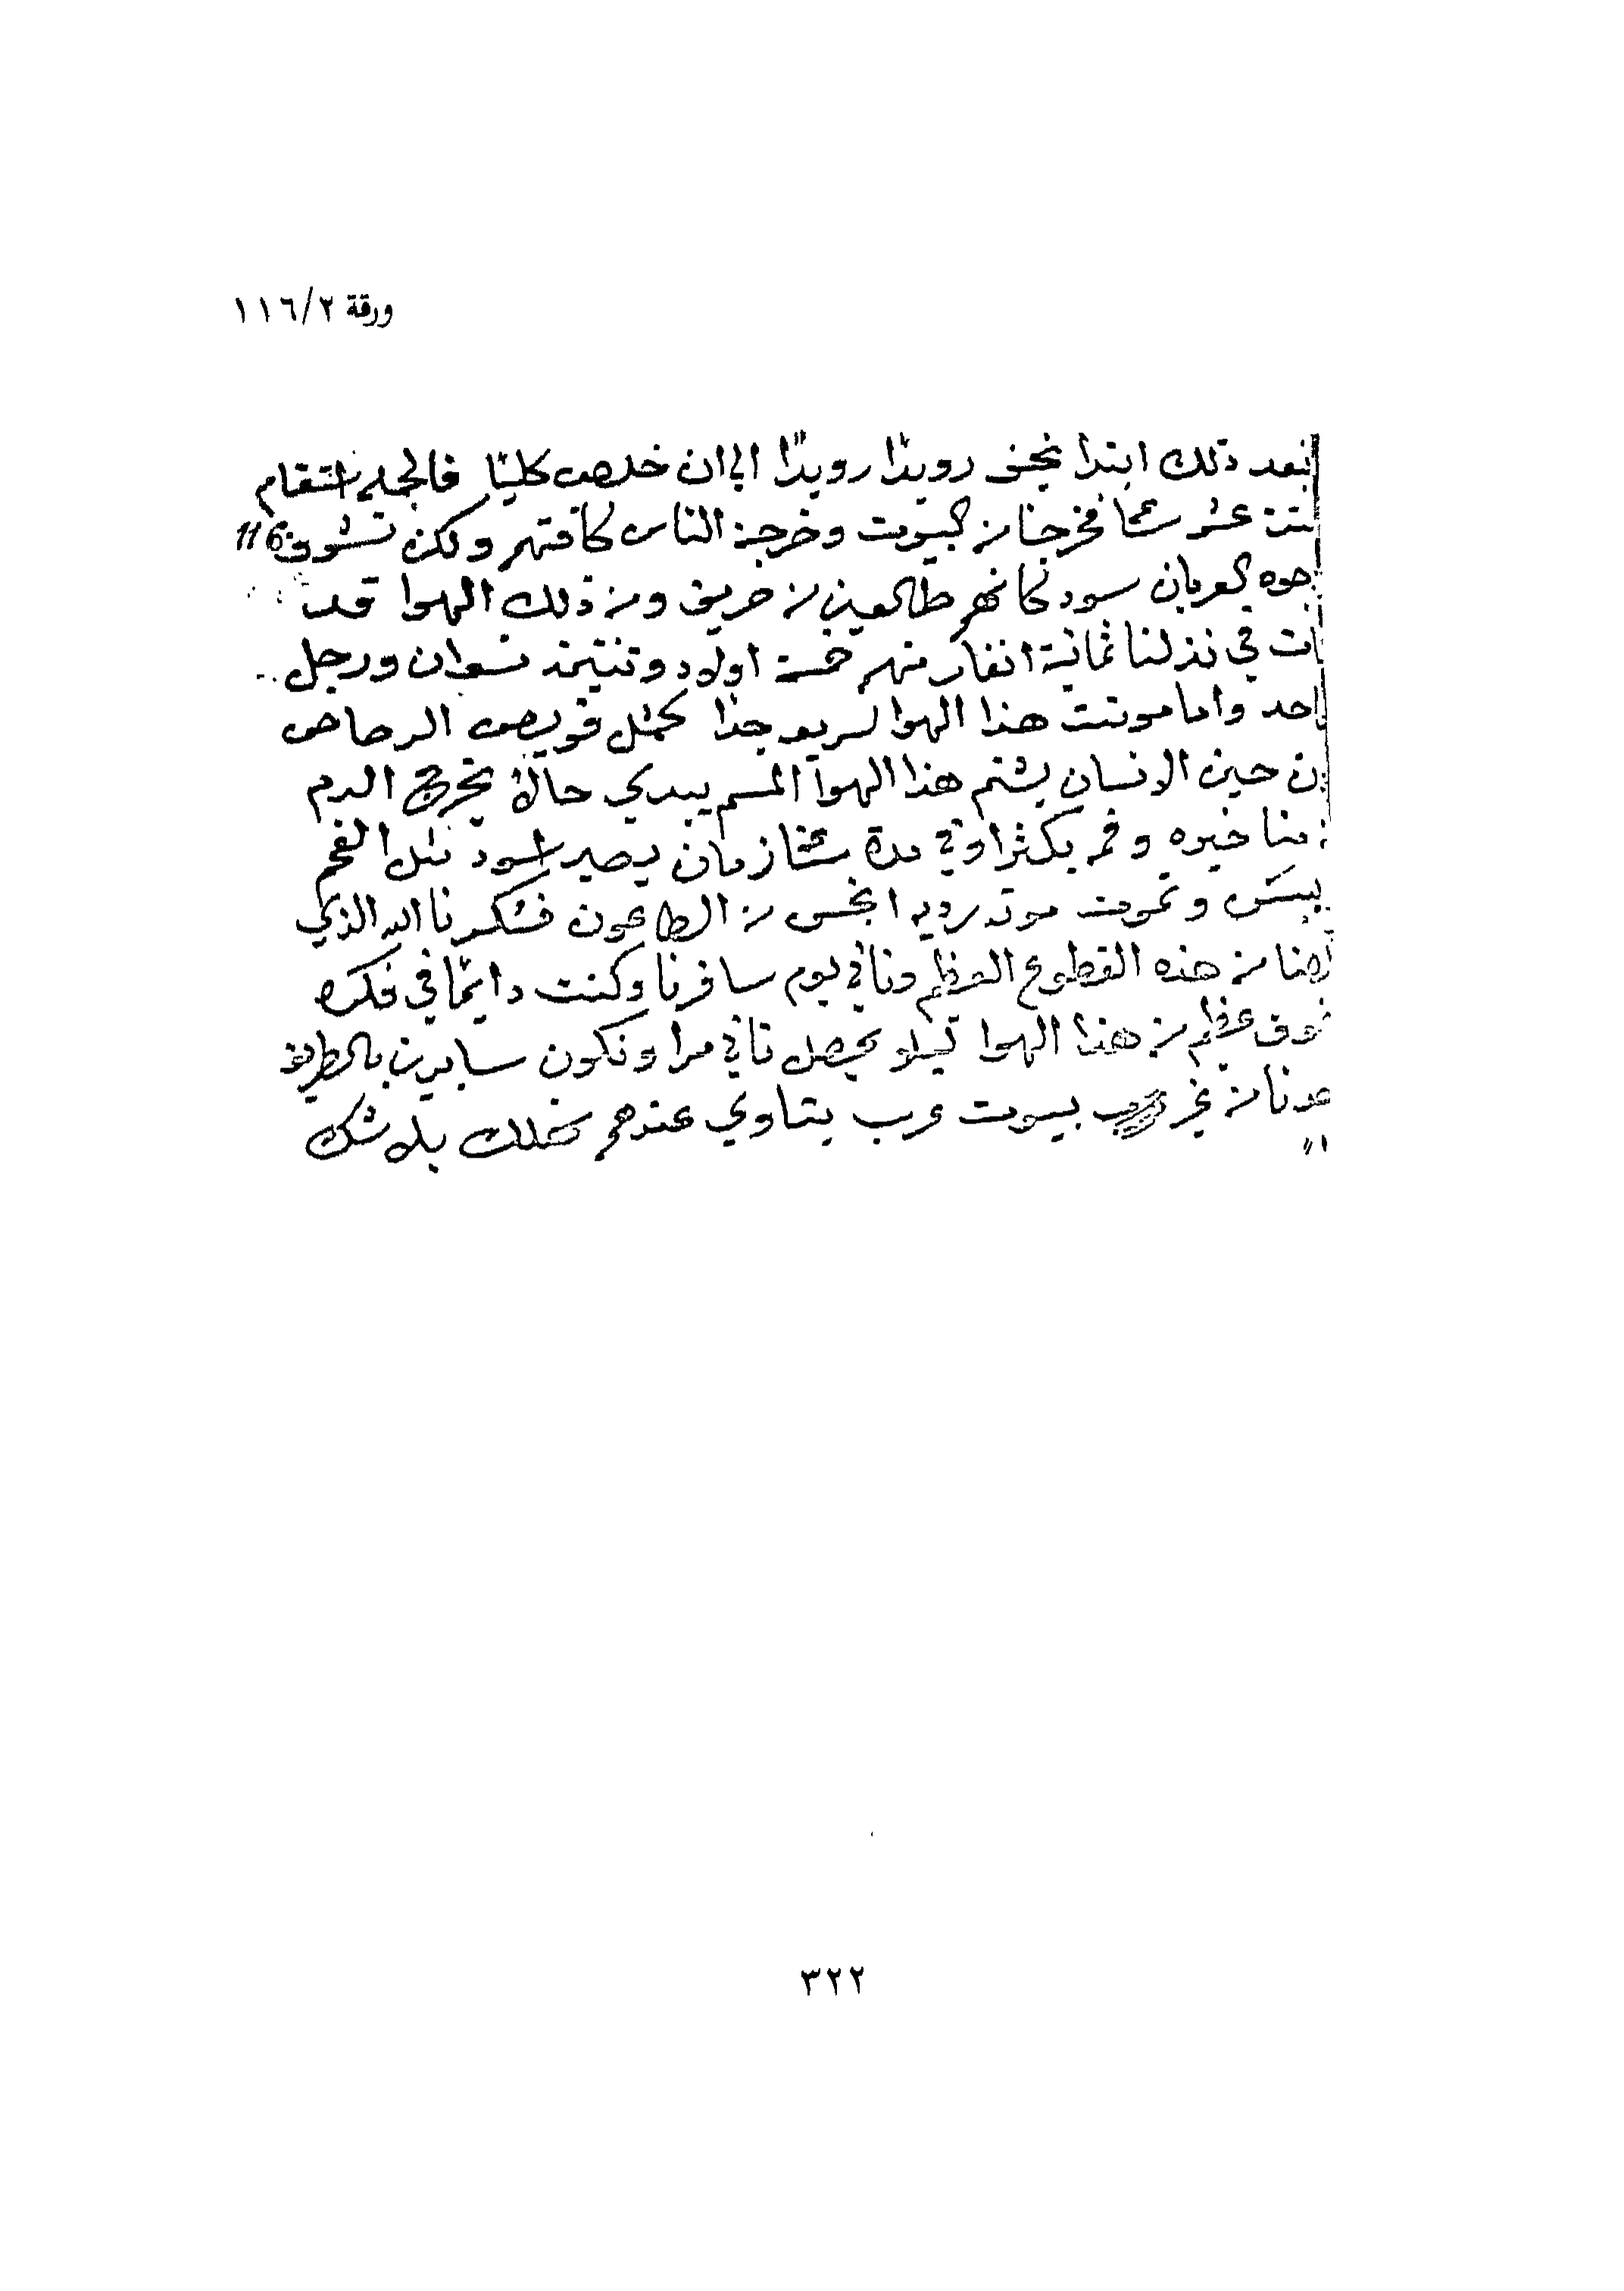 ورقة ١١٦/٢
بعد ذلك ابتدا يخف رويدًا رويدًا الى ان خلص كليًا فالجمله استقام
عشر فخرجنا من البيوت وخرجة الناس كافتهم ولكن تشوف 116
جوه العربان سود كانهم طالعين من حريق ومن ذلك الهوا قد
ات في نذلنا ثمانية انفار منهم خمسة اولاد وتنتين نسوان ورجل
احد واما موتت هذا الهوا سريع جدًا كمثل قويص الرصاص
ن حين الانسان يشتم هذا الهوا المسم يبدي حالاً يخرج الدم
مناخيره وفمه بكثرا وفي مدة زمان يصير اسود مثل الفحم
ييبس وتموت موته رديه انجس من الطاعون فشكرنا الله الذي
من هذه القطوع العظيم وثاني يوم سافرنا وكنت دايمًا في فكره
خوف عظيم من هذا الهوا ليلا يحصل ثاني مرا ونكون سايرين بالطريق
عدنا من غير بيوت عرب يتاوي عندهم نهلك بلا شك
٣٢٢